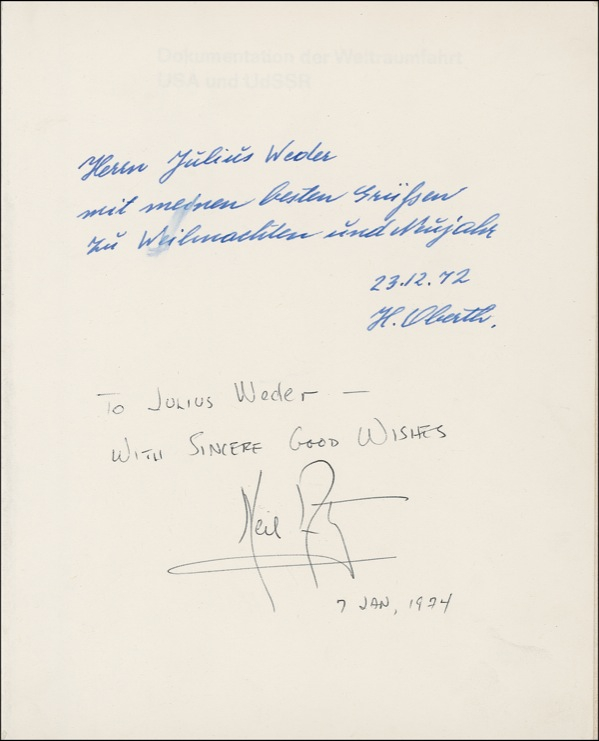 Dokumentation der Weltraumfahrt
USA und UdSSR
Herrn Julius Weder
mit meinen besten Grüßen
zu Weihnachten und Neujahr
23.12.72
H. Oberth.
To Julius Weder —
With Sincere Good Wishes
Neil
7 Jan, 1974